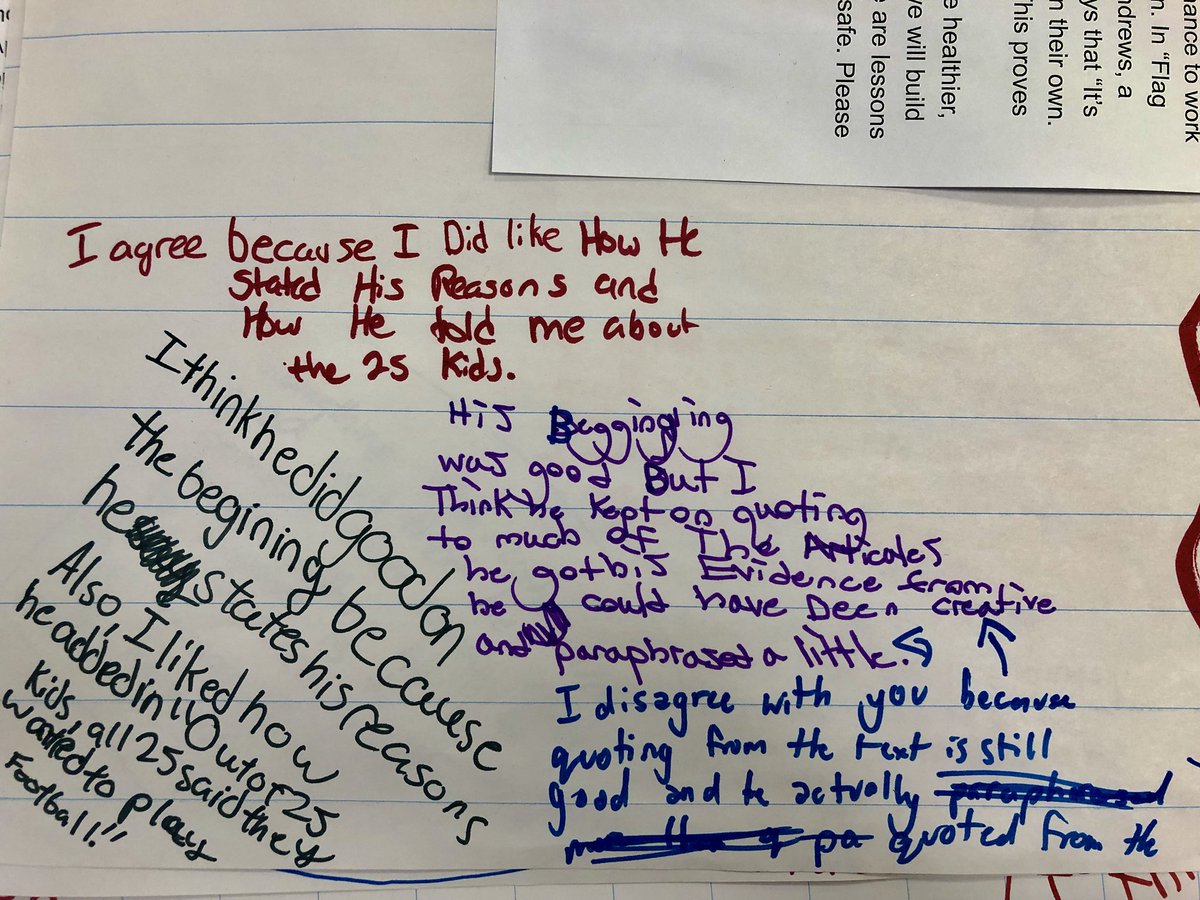 nance to work
n. In "Flag
ndrews, a
ys that "It's
n their own.
This proves
e healthier,
ve will build
e are lessons
safe. Please
I agree because I Did like How He
Stated His Reasons and
How He told me about
the 25 Kids.
I think he did good on
the begining, because
he states his reasons
Also, I liked how
he added in "Out of 25
Kids, all 25 said they
wanted to play
Football."
His Beggingling
was good But I
Think he kept on quoting
to much of The Articales
he got his Evidence from
he could have Been creative
and paraphrased a little.
I disagree with you because
quoting from the text is still
good and he actually paraphrased
quoted from the